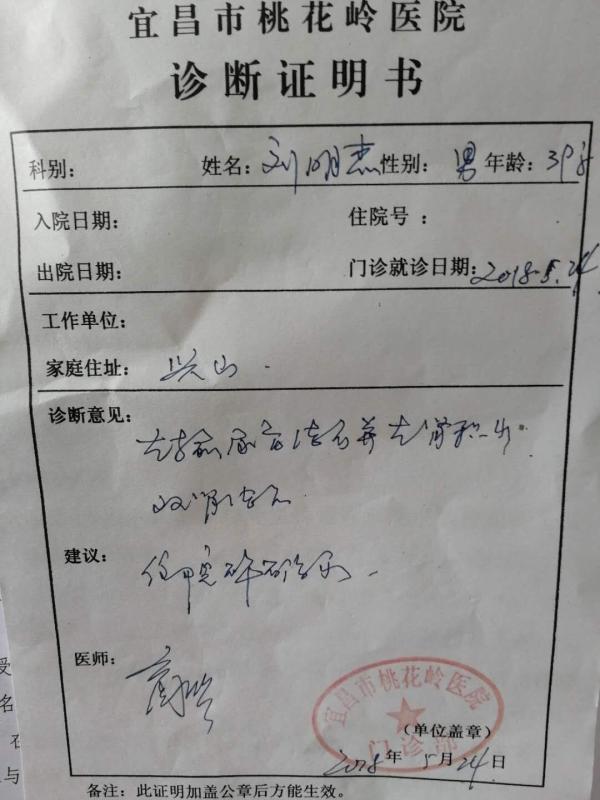 宜昌市桃花岭医院
诊断证明书
科别： 姓名：刘明杰 性别：男 年龄：39岁
入院日期： 住院号：
出院日期： 门诊就诊日期：2018.5.24
工作单位：
家庭住址：兴山.
诊断意见：
左输尿管结石并左肾积水
双肾结石
建议：住院碎石治疗.
医师：
宜昌市桃花岭医院
门诊部
(单位盖章)
2018年5月24日
备注：此证明加盖公章后方能生效。
授
名
与